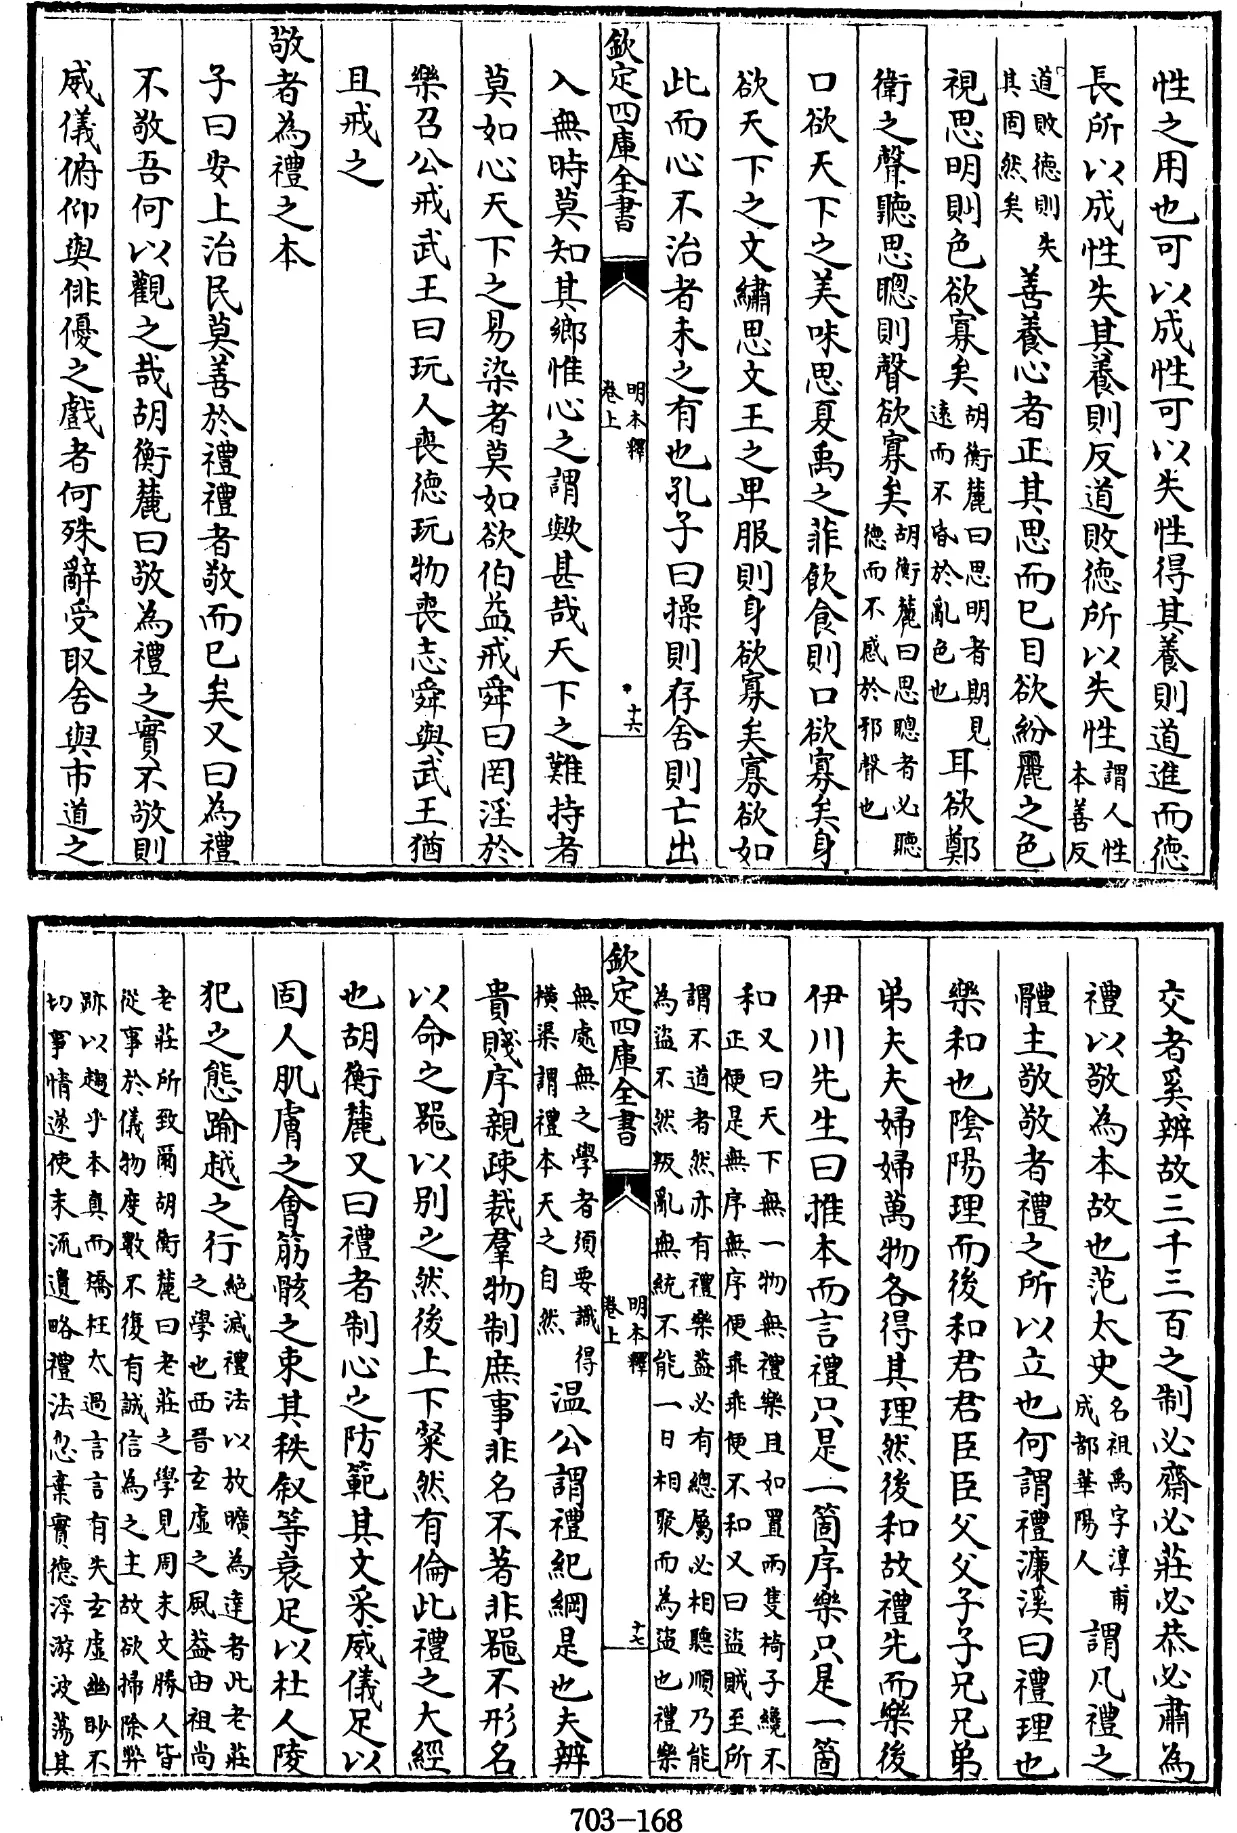 性之用也可以成性可以失性得其養則道進而德
長所以成性失其養則反道敗德所以失性謂人性本善反
道敗德則失其固然矣善養心者正其思而已目欲紛麗之色
視思明則色欲寡矣胡衡麓曰思明者期見遠而不昏於亂色也耳欲鄭
衛之聲聽思聰則聲欲寡矣胡衡麓曰思聰者必聽德而不惑於邪聲也
口欲天下之美味思夏禹之菲飲食則口欲寡矣身
欲天下之文繡思文王之卑服則身欲寡矣寡欲如
此而心不治者未之有也孔子曰操則存舍則亡出
欽定四庫全書
明本釋
卷上
十六
入無時莫知其鄉惟心之謂歟甚哉天下之難持者
莫如心天下之易染者莫如欲伯益戒舜曰罔淫於
樂召公戒武王曰玩人喪德玩物喪志舜與武王猶
且戒之
敬者為禮之本
子曰安上治民莫善於禮禮者敬而已矣又曰為禮
不敬吾何以觀之哉胡衡麓曰敬為禮之實不敬則
威儀俯仰與俳優之戲者何殊辭受取舍與市道之
交者奚辨故三千三百之制必齋必莊必恭必肅為
禮以敬為本故也范太史名祖禹字淳甫成都華陽人謂凡禮之
體主敬敬者禮之所以立也何謂禮濂溪曰禮理也
樂和也陰陽理而後和君君臣臣父父子子兄兄弟
弟夫夫婦婦萬物各得其理然後和故禮先而樂後
伊川先生曰推本而言禮只是一箇序樂只是一箇
和又曰天下無一物無禮樂且如置兩隻椅子纔不正便是無序無序便乖乖便不和又曰盜賊至所
謂不道者然亦有禮樂蓋必有總屬必相聽順乃能為盜不然叛亂無統不能一日相聚而為盜也禮樂
欽定四庫全書
明本釋
卷上
十七
無處無之學者須要識得橫渠謂禮本天之自然温公謂禮紀綱是也夫辨
貴賤序親疎裁羣物制庶事非名不著非器不形名
以命之器以別之然後上下粲然有倫此禮之大經
也胡衡麓又曰禮者制心之防範其文采威儀足以
固人肌膚之會筋骸之束其秩叙等衰足以杜人陵
犯之態踰越之行絕滅禮法以放曠為達者此老莊之學也西晉玄虛之風蓋由祖尚
老莊所致爾胡衡麓曰老莊之學見周末文勝人皆從事於儀物度數不復有誠信為之主故欲掃除弊
跡以趨乎本真而矯枉太過言言有失玄虛幽眇不切事情遂使末流遺略禮法忽棄實德浮游波蕩其
703-168